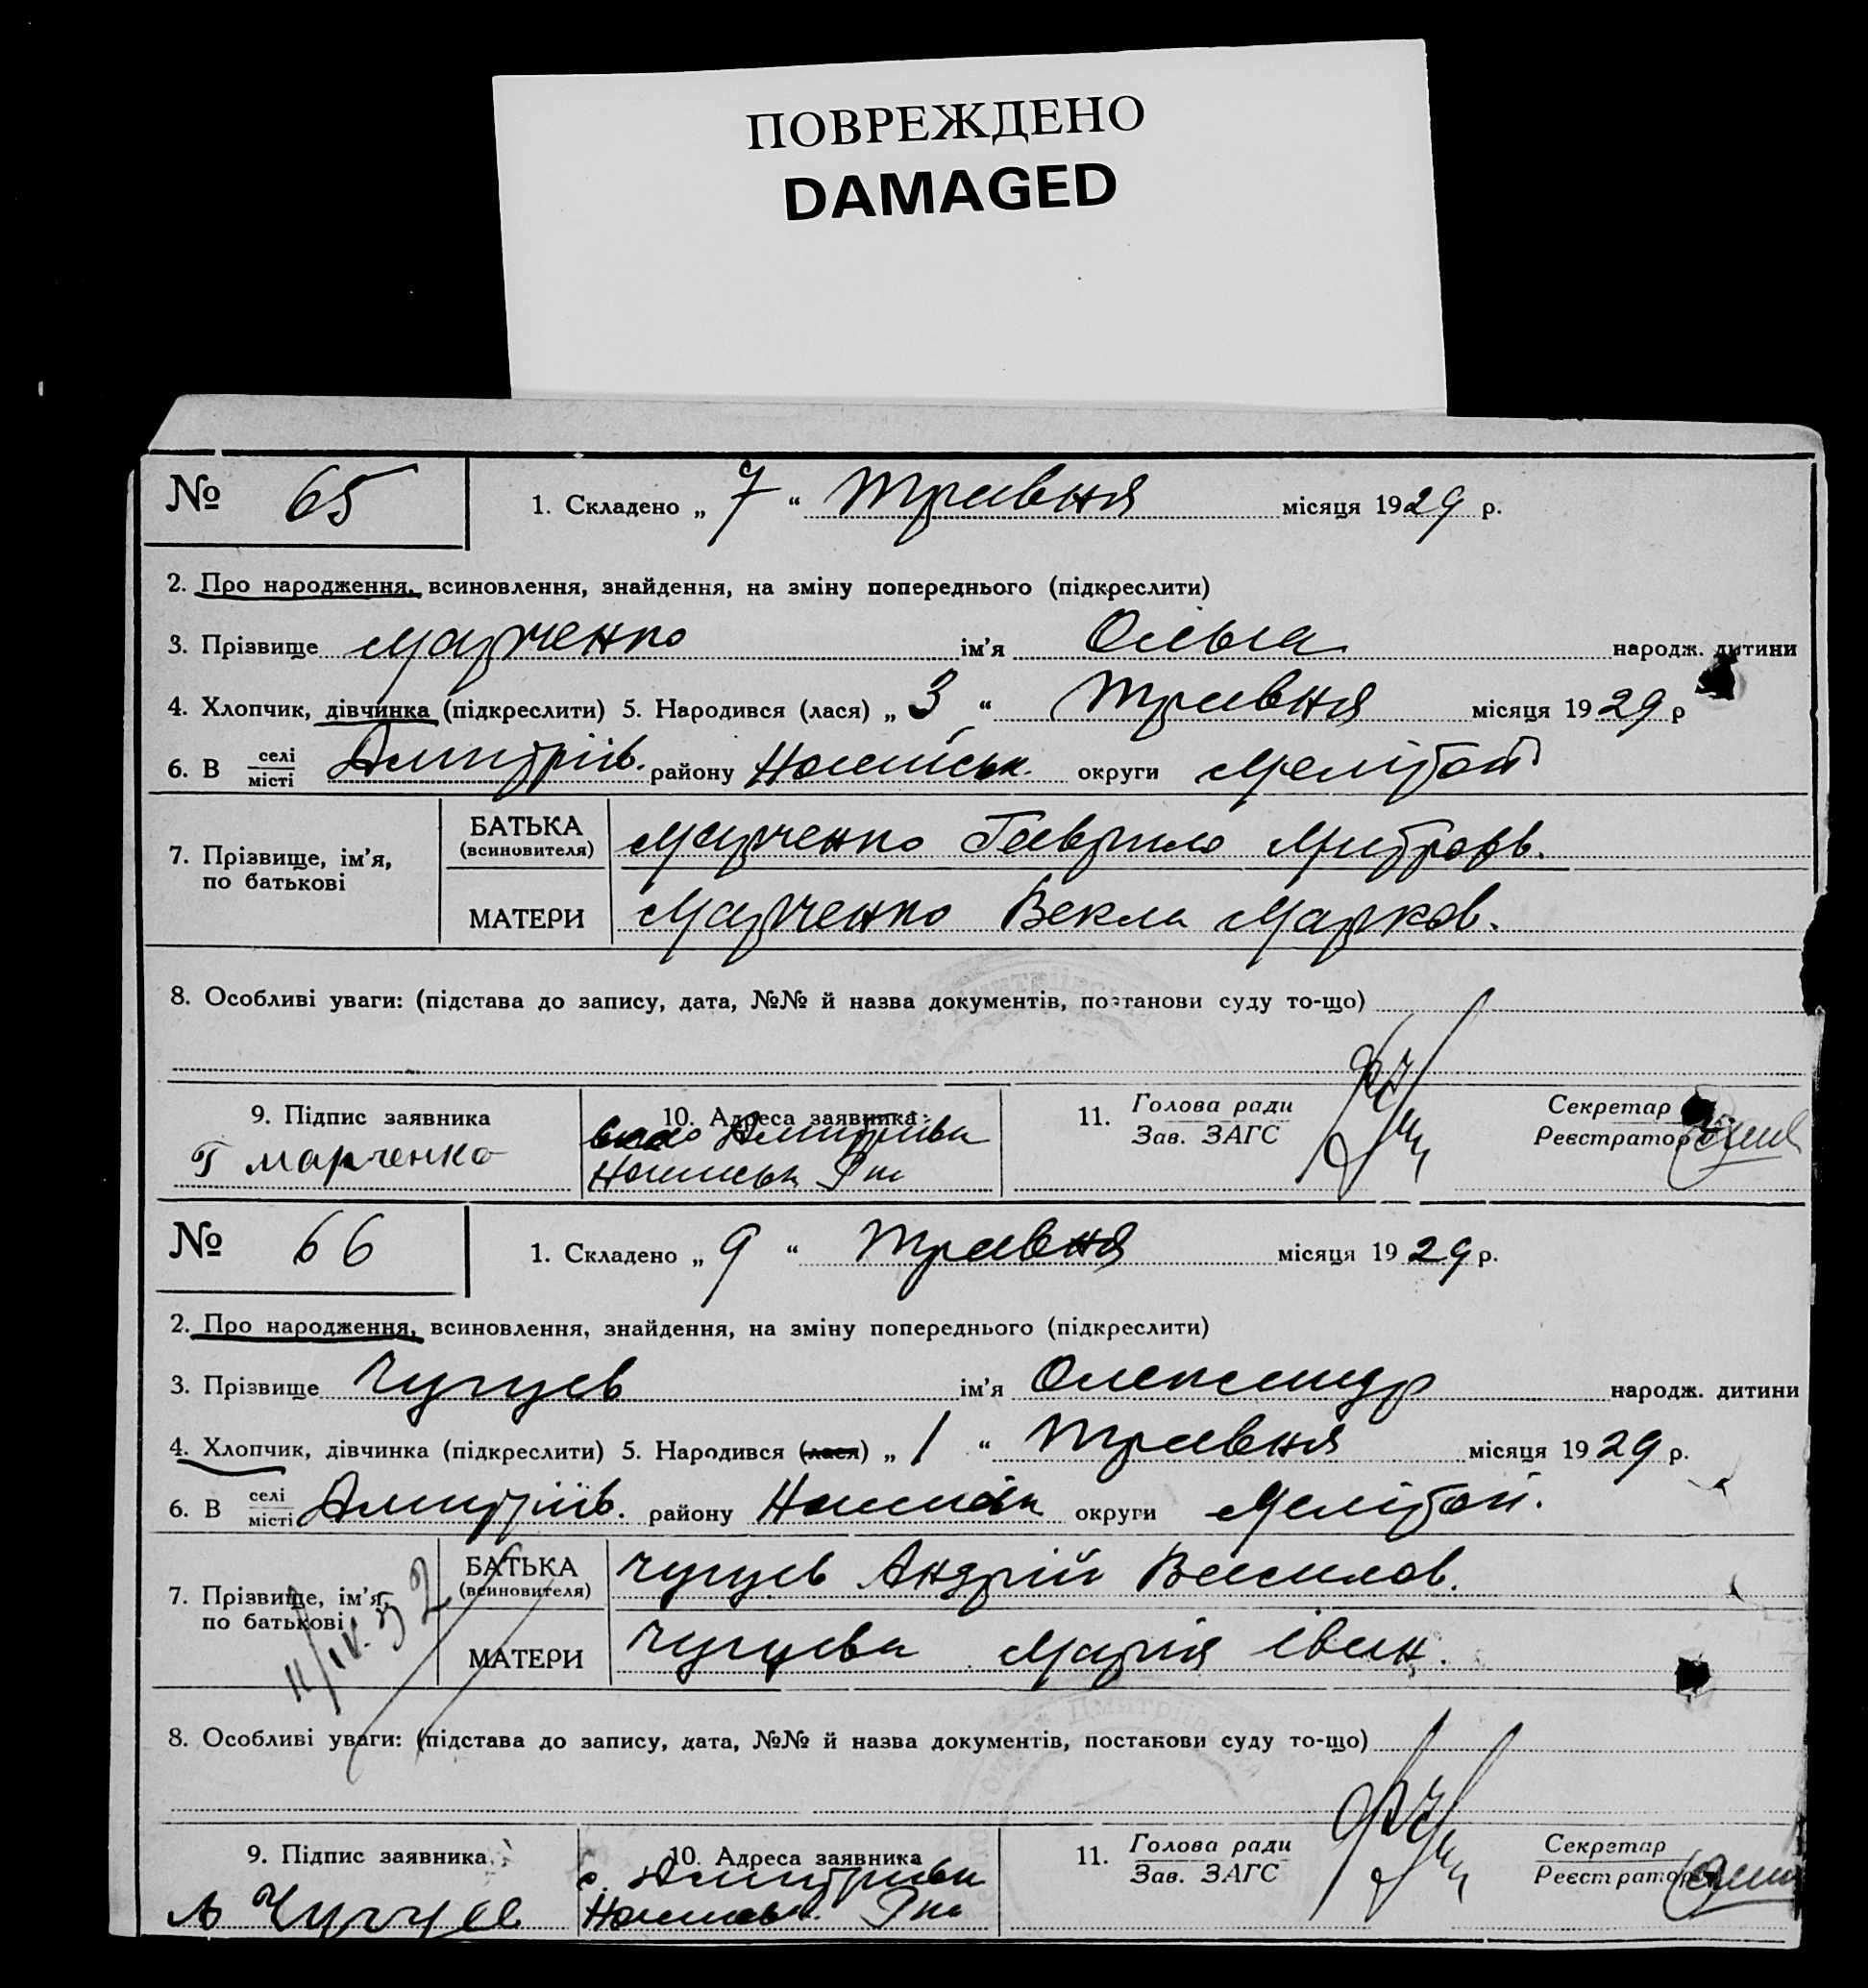 ПОВРЕЖДЕНО
DAMAGED
№ 65 1. Складено „ 7 “ травня місяця 1929 р.
2. Про народження, всиновлення, знайдення, на зміну попереднього (підкреслити)
3. Прізвище Марченко ім'я Ольга народж. дитини
4. Хлопчик, дівчинка (підкреслити) 5. Народився (лася) „ 3 “ травня місяця 1929 р
6. В селі/місті Дмитрів. району округи Мелітоп
7. Прізвище, ім'я, по батькові
БАТЬКА (всиновителя) Марченко Гаврило Митроф.
МАТЕРИ Марченко Векла Марков.
8. Особливі уваги: (підстава до запису, дата, №№ й назва документів, постанови суду то-що)
9. Підпис заявника 10. Адреса заявника: 11. Голова ради Секретар
Зав. ЗАГС Реєстратор
Г Марченко Дмитрівка
№ 66 1. Складено „ 9 “ травня місяця 1929 р.
2. Про народження, всиновлення, знайдення, на зміну попереднього (підкреслити)
3. Прізвище Чугуєв ім'я Олександр народж. дитини
4. Хлопчик, дівчинка (підкреслити) 5. Народився (лася) „ 1 “ травня місяця 1929 р.
6. В селі/місті Дмитрів. району округи Мелітоп.
7. Прізвище, ім'я, по батькові
БАТЬКА (всиновителя) Чугуєв Андрій Василов.
МАТЕРИ Чугуєва Марія Іван.
11/IV.32
8. Особливі уваги: (підстава до запису, дата, №№ й назва документів, постанови суду то-що)
9. Підпис заявника 10. Адреса заявника 11. Голова ради Секретар
Зав. ЗАГС Реєстратор
А Чугуев с. Дмитрівка